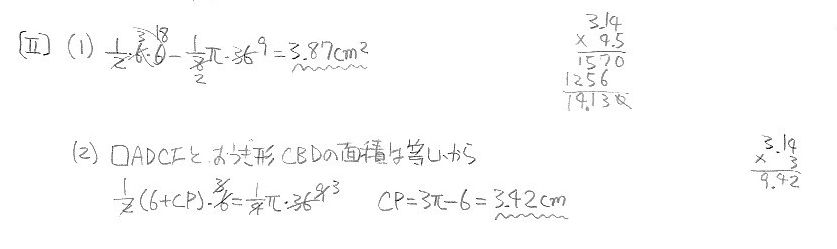 [II] (1) 1/2・6・6 − 1/8π・36 = 3.87cm²
3.14
× 4.5
1570
1256
14.130
(2) □ADCEと おうぎ形CBDの面積は等しいから
1/2(6+CP)・6=1/4π・36 CP=3π−6=3.42cm
3.14
× 3
9.42